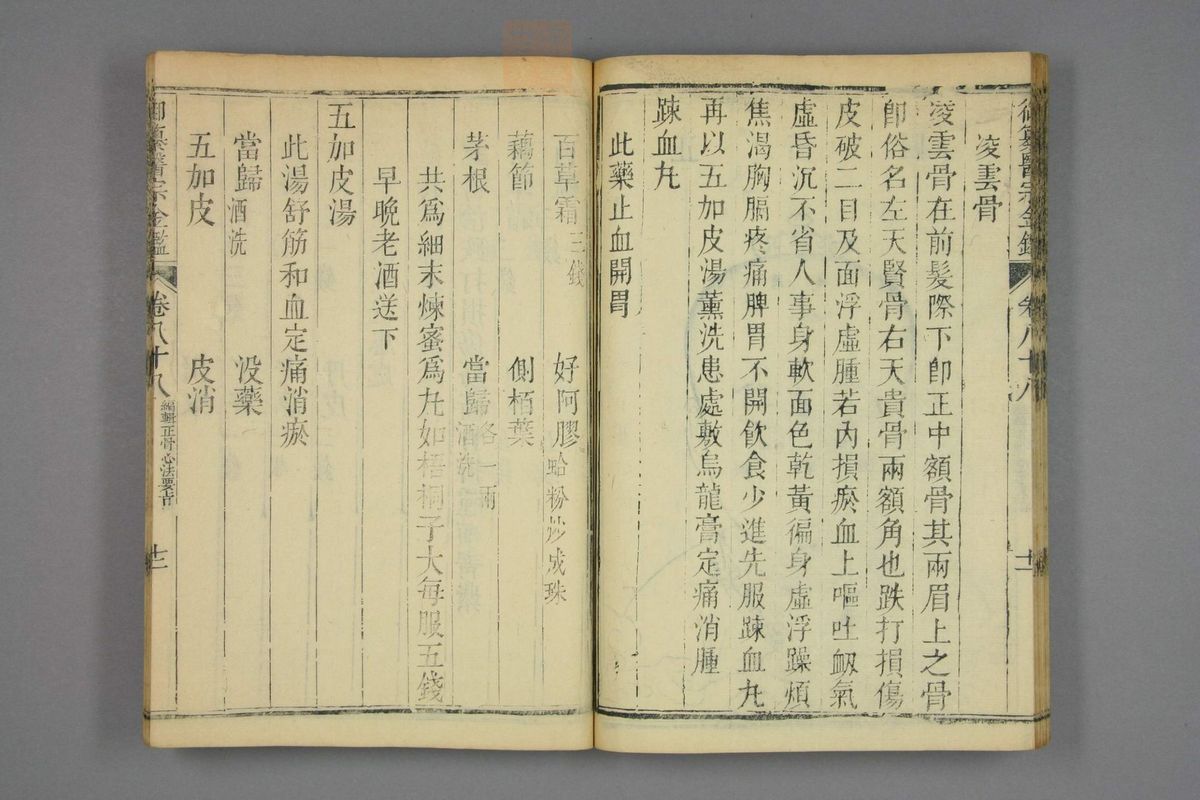 御纂醫宗金鑑 卷八十八 十一
凌雲骨
凌雲骨在前髮際下卽正中額骨其兩眉上之骨
卽俗名左天賢骨右天貴骨兩額角也跌打損傷
皮破二目及面浮虛腫若內損瘀血上嘔吐衂氣
虛昏沉不省人事身軟面色乾黃徧身虛浮躁煩
焦渴胸膈疼痛脾胃不開飮食少進先服疎血丸
再以五加皮湯薰洗患處敷烏龍膏定痛消腫
疎血丸
此藥止血開胃
百草霜三錢 好阿膠蛤粉炒成珠
藕節 側栢葉
茅根 當歸酒洗各一兩
共爲細末煉蜜爲丸如梧桐子大每服五錢
早晚老酒送下
五加皮湯
此湯舒筋和血定痛消瘀
當歸酒洗 沒藥
五加皮 皮消
御纂醫宗金鑑 卷八十八 編輯正骨心法要旨